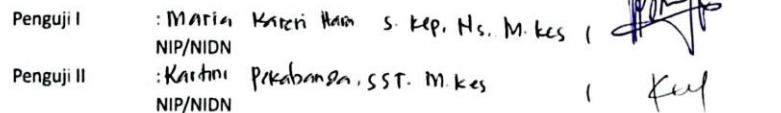 Penguji I : Maria Kareri Hara S. Kep, Ns, M. kes (
NIP/NIDN
Penguji II : Kartini Pekabanda, SST. M. kes (
NIP/NIDN